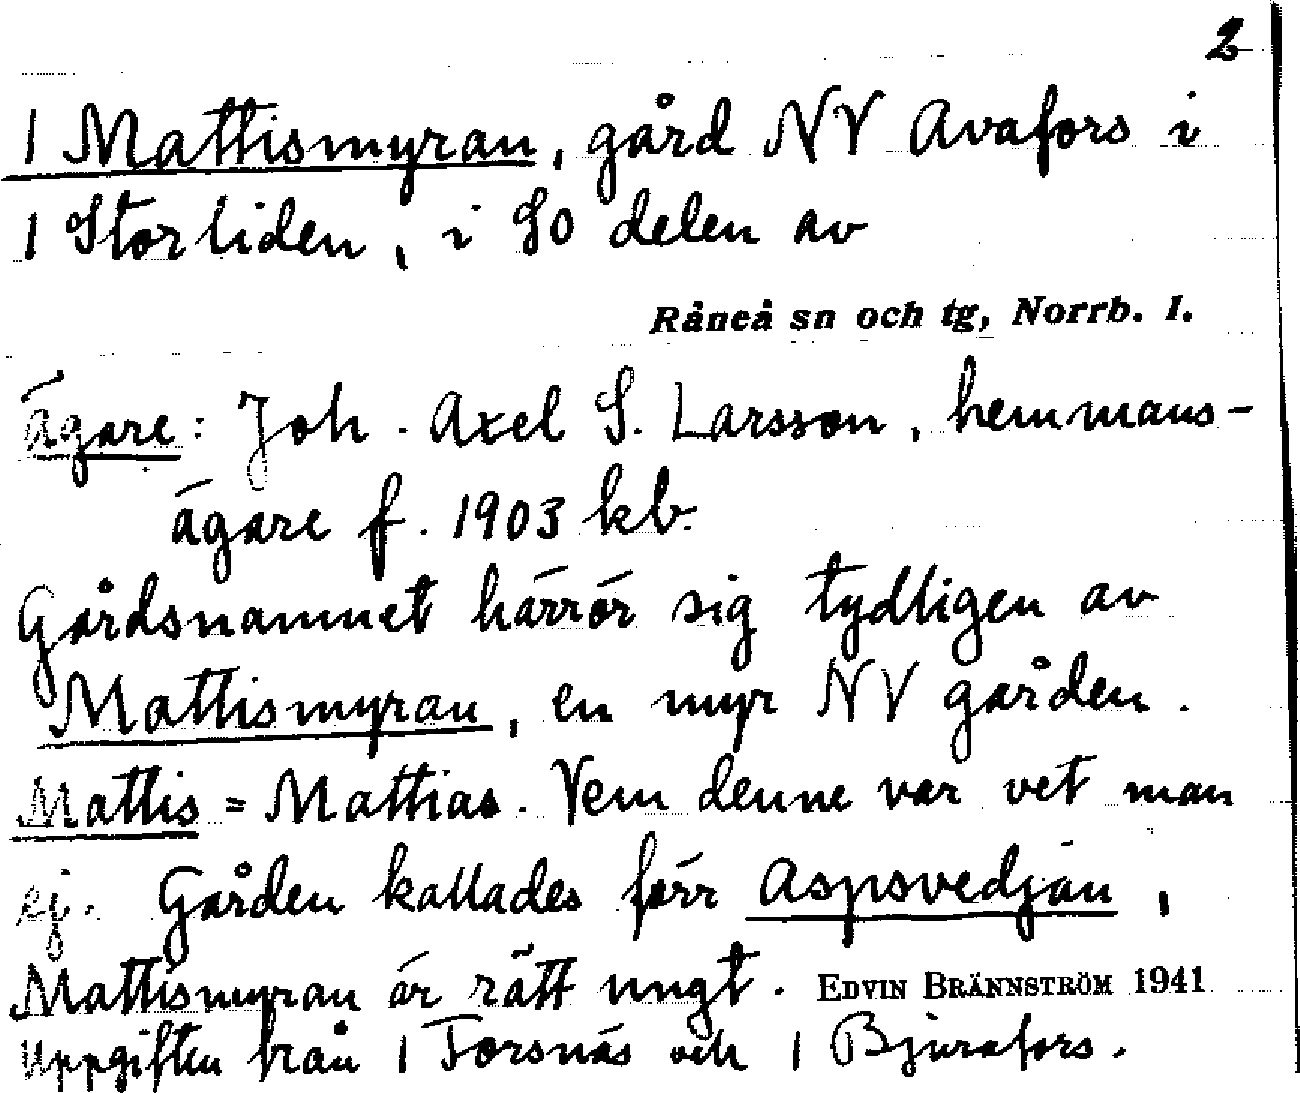 2
1 Mattismyran, gård NV Avafors i
1 Storliden, i SO delen av
Råneå sn och tg, Norrb. l.
ägare: Joh. Axel S. Larsson, hemmans-
ägare f. 1903 kb.
Gårdsnamnet härrör sig tydligen av
Mattismyran, en myr NV gården.
Mattis = Mattias. Vem denne var vet man
ej. Gården kallades förr Aspsvedjan,
Mattismyran är rätt ungt. EDVIN BRÄNNSTRÖM 1941
Uppgiften från 1 Forsnäs och 1 Bjurafors.